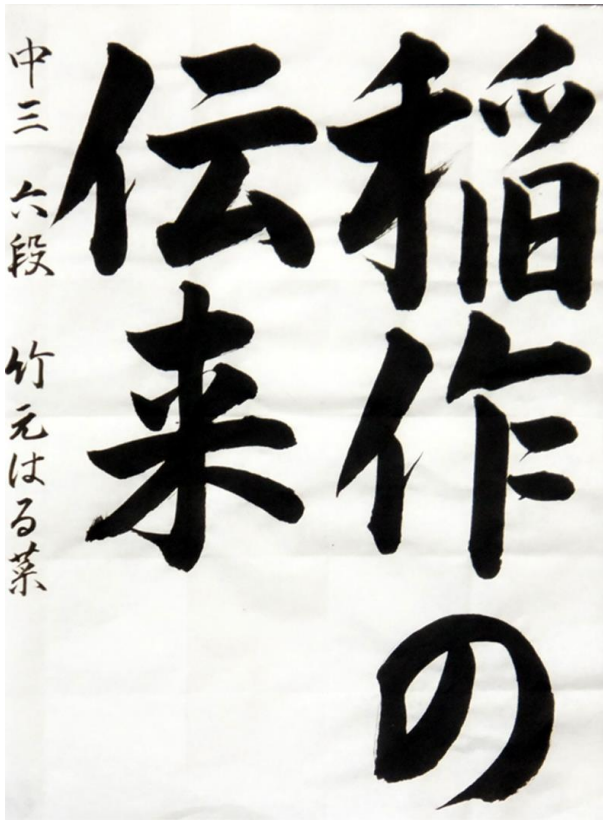 稲作の
伝来
中三 六段 竹元はる菜